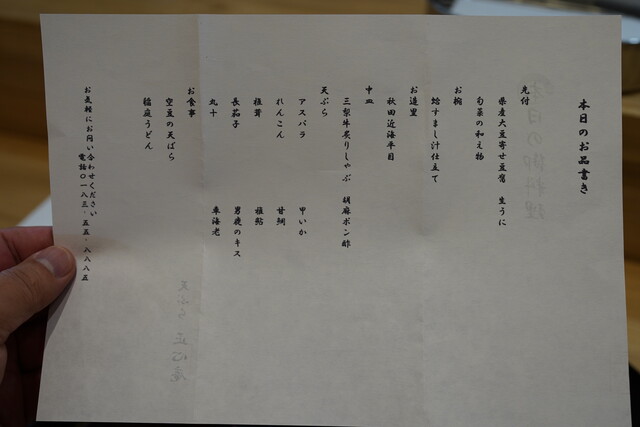 本日のお品書き
先付
県産大豆寄せ豆腐　生うに
旬菜の和え物
お椀
蛤すまし汁仕立て
お造里
秋田近海平目
中皿
三梨牛炙りしゃぶ　胡麻ポン酢
天ぷら
アスパラ　甲いか
れんこん　甘鯛
椎茸　稚鮎
長茄子　男鹿のキス
丸十　車海老
お食事
空豆の天ばら
稲庭うどん
お気軽にお問い合わせください
電話〇一八三‐五五‐八八八五
本日の御料理
天ぷら　正心庵